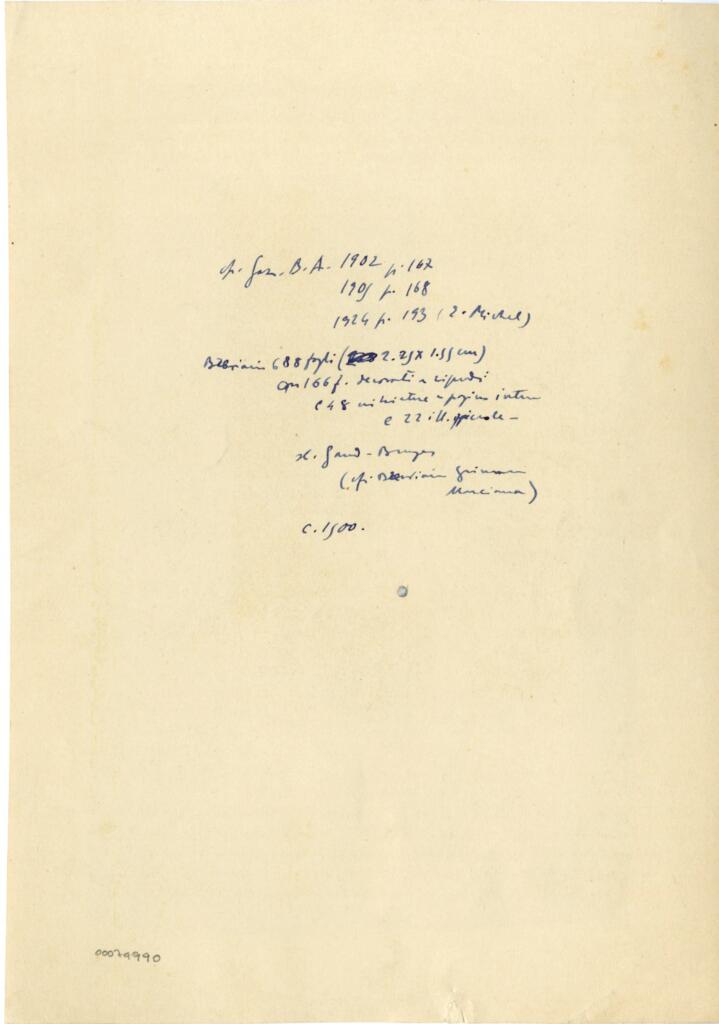 cfr. Gaz. B. A. 1902 p. 167
1905 p. 168
1924 p. 193 (E. Michel)
Breviario 688 fogli ( 2.25 x 1.55 cm)
con 166 f. decorati a
e 48 miniature a pagina intera
e 22 ill. piccole -
sc. Gand - Bruges
(cfr. Breviario Grimani
Marciana)
c. 1500.
00079990